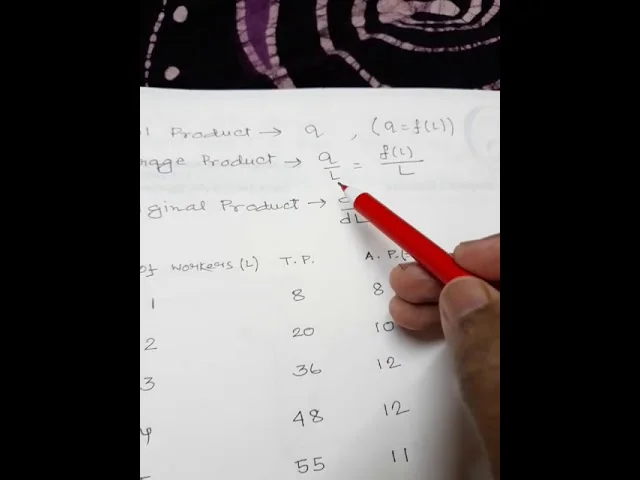 Product → q , (q = f(L))
Product → q/L = f(L)/L
Product → dL
of workers (L) T.P. A.P.
1 8 8
2 20 10
3 36 12
4 48 12
55 11